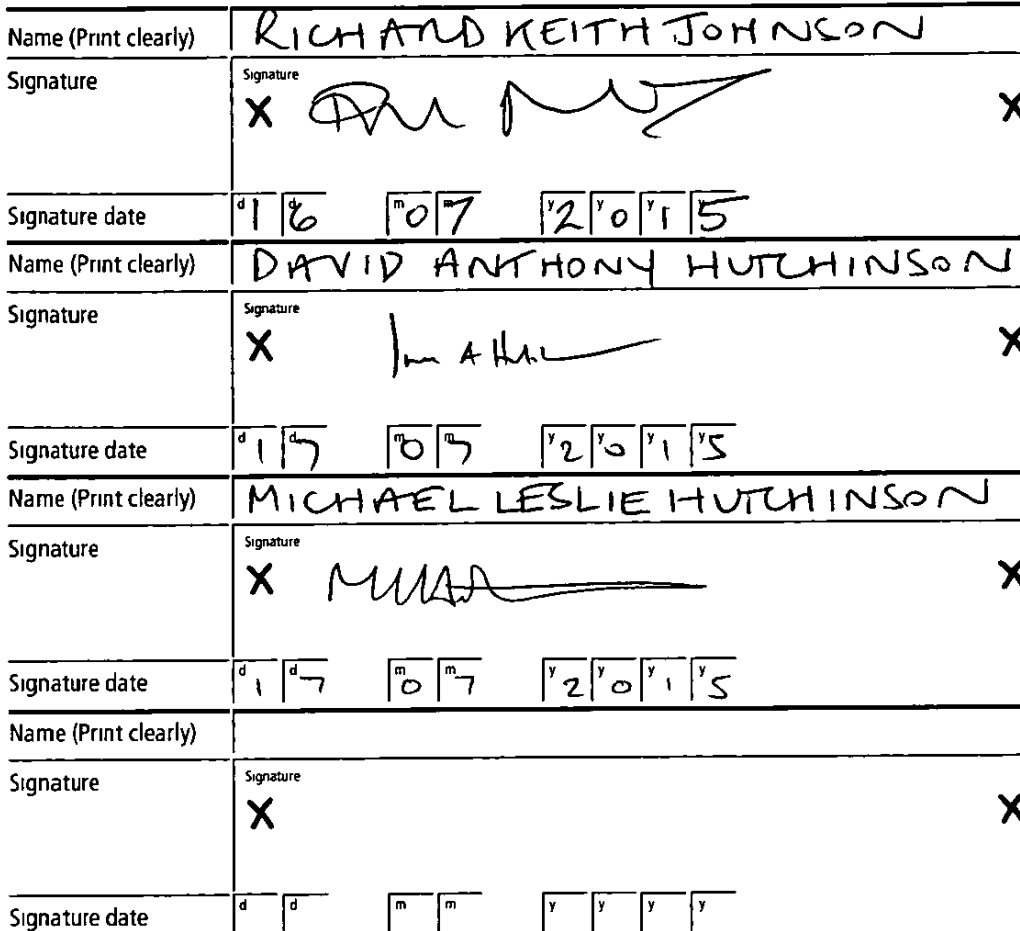 Name (Print clearly) RICHARD KEITH JOHNSON
Signature Signature
X X
Signature date d d m m y y y y 16 07 2015
Name (Print clearly) DAVID ANTHONY HUTCHINSON
Signature Signature
X X
Signature date d d m m y y y y 17 07 2015
Name (Print clearly) MICHAEL LESLIE HUTCHINSON
Signature Signature
X X
Signature date d d m m y y y y 17 07 2015
Name (Print clearly)
Signature Signature
X X
Signature date d d m m y y y y